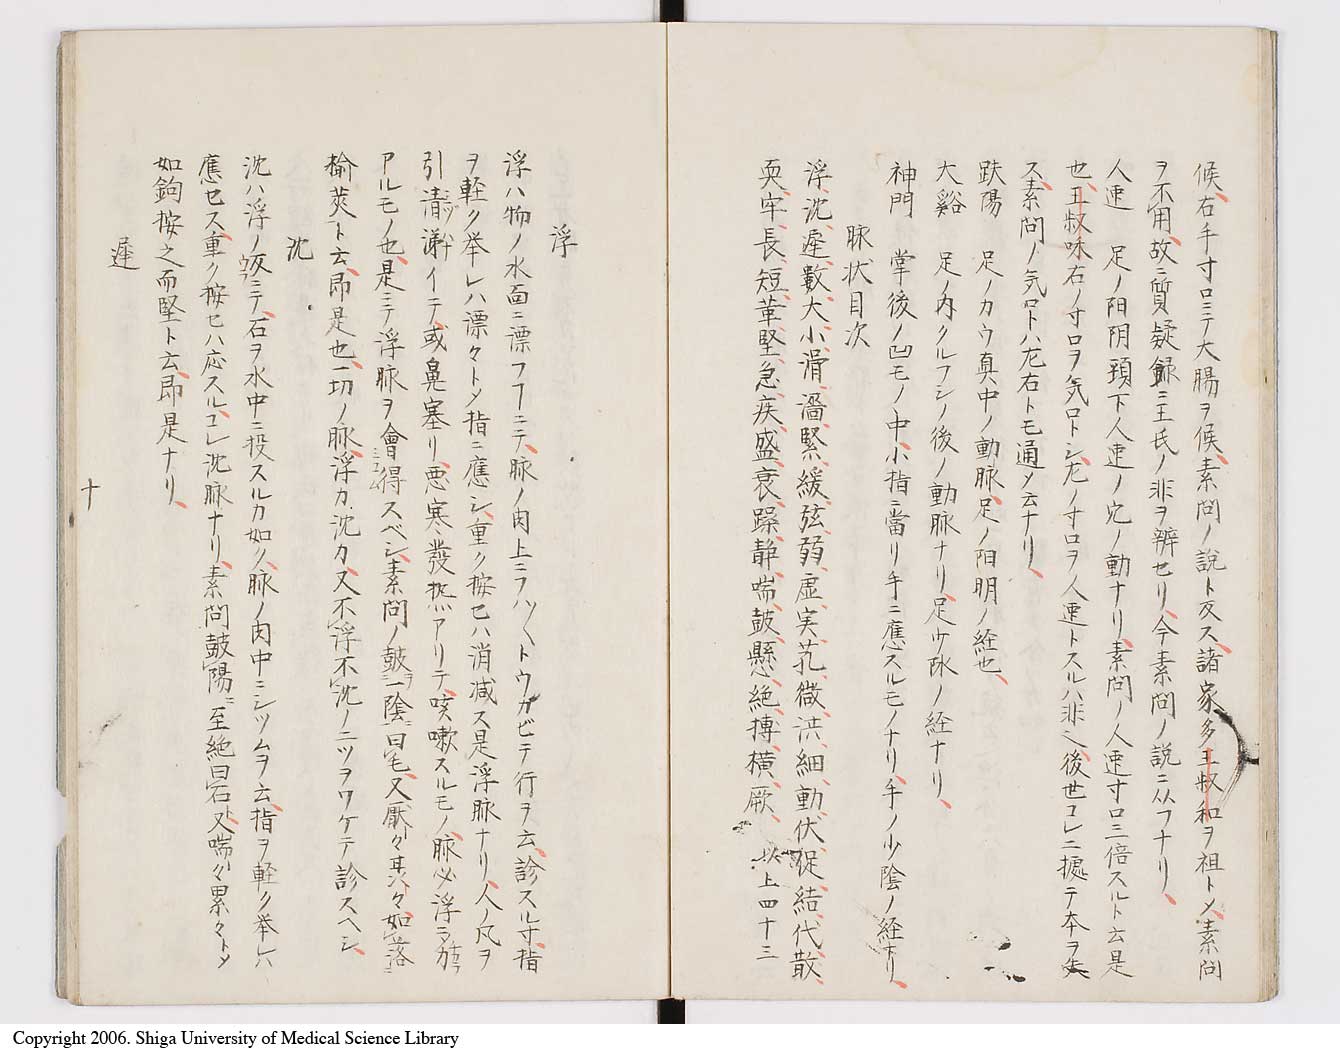 候、右手寸口ニテ大腸ヲ候、素問ノ説ト反ス、諸家多王叔和ヲ祖トメ、素問
ヲ不用、故ニ質疑録ニ王氏ノ非ヲ辨セリ、今素問ノ説ニ从フナリ、
人迎　足ノ陽明頚下人迎ノ穴ノ動ナリ、素問ノ人迎寸口三倍スルト云是
也、王叔和右ノ寸口ヲ気口トシ、左ノ寸口ヲ人迎トスルハ非也、後世コレニ據テ本ヲ失
ス、素問ノ気口トハ左右トモ通メ云ナリ、
趺陽　足ノカウ真中ノ動脉、足ノ陽明ノ経也、
大谿　足ノ内クルフシノ後ノ動脉ナリ、足少陰ノ経ナリ、
神門　掌後ノ凹モノ中、小指ニ當リ手ニ應スルモノナリ、手ノ少陰ノ経ナリ、
脉状目次
浮、沈、遲、數、大、小、滑、濇、緊、緩、弦、弱、虚、実、芤、微、洪、細、動、伏、促、結、代、散、
耎、牢、長、短、革、堅、急、疾、盛、衰、躁、静、喘、鼓、懸、絶、搏、横、厥、　以上四十三
浮
浮ハ物ノ水面ニ漂フフニテ、脉ノ肉上ニフハ〱トウカビテ行ヲ云、診スル寸、指
ヲ軽ク挙レハ漂々トメ指ニ應シ、重ク按セハ消减ス、是浮脉ナリ、人ノ凡ヲ
引清涕イテ、或鼻塞リ、悪寒、發热アリテ、咳嗽スルモノ、脉必浮ヲカ
アルモノ也、是ニテ浮脉ヲ會得スベシ、素問ノ鼓一陰曰毛、又厭々其々、如落
楡莢ト云、即是也、一切ノ脉、浮カ沈カ、又不浮不沈ノ二ツヲワケテ診スベシ、
沈
沈ハ浮ノ反ニテ、石ヲ水中ニ投スルカ如ク、脉ノ肉中ニシツムヲ云、指ヲ軽ク挙レハ
應セス、重ク按セハ応スル、コレ沈脉ナリ、素問鼓陽ニ至絶曰石、又喘々累々トメ
如鉤按之而堅ト云、即是ナリ、
遲
十
Copyright 2006. Shiga University of Medical Science Library